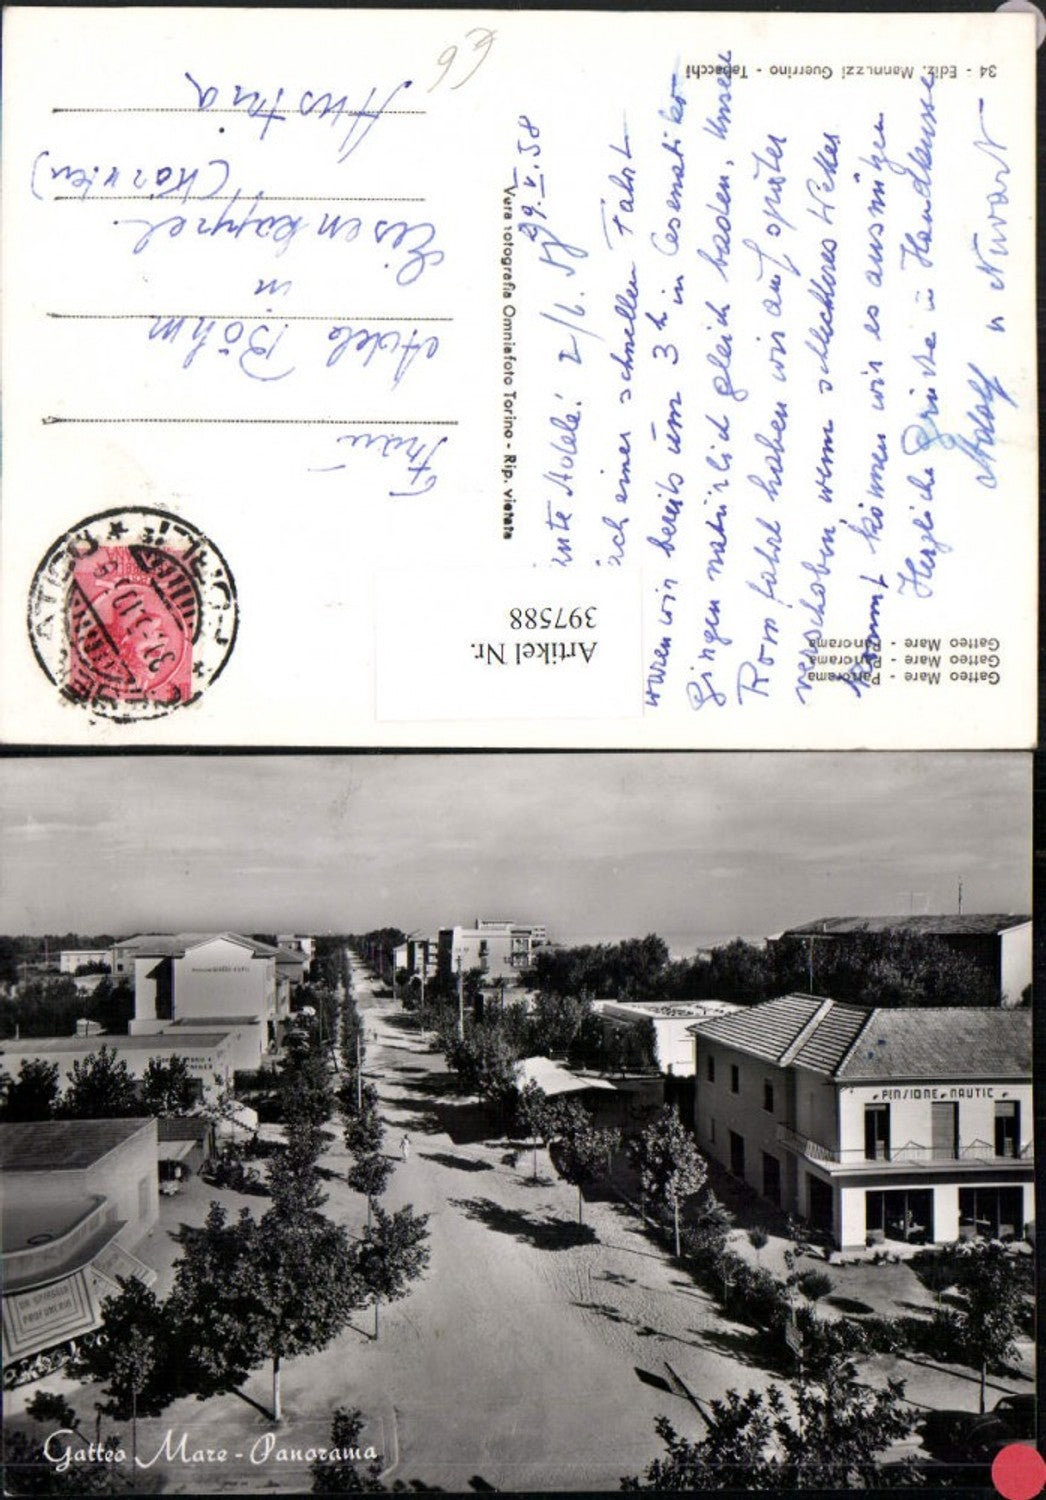 6€
34 - Ediz. Mannuzzi Guerrino - Tabacchi
Gatteo Mare - Panorama
Gatteo Mare - Panorama
Gatteo Mare - Panorama
Vera fotografia Omniafoto Torino - Rip. vietata
29.V.58
Tante Adele! 2/6. 58
Nach einer schnellen Fahrt
waren wir bereits um 3h in Cesenatiko
Gingen natürlich gleich baden. Unsere
Romfahrt haben wir auf später
verschoben wenn schlechteres Wetter
kommt können wir es ausnützen
Herzliche Grüsse u Handküsse
Adolf u
Frau
Adele Böhm
in
Eisenkappel
(Kärnten)
Austria
Artikel Nr.
397588
PENSIONE NAUTIC
PROFUMERIA
Gatteo Mare - Panorama